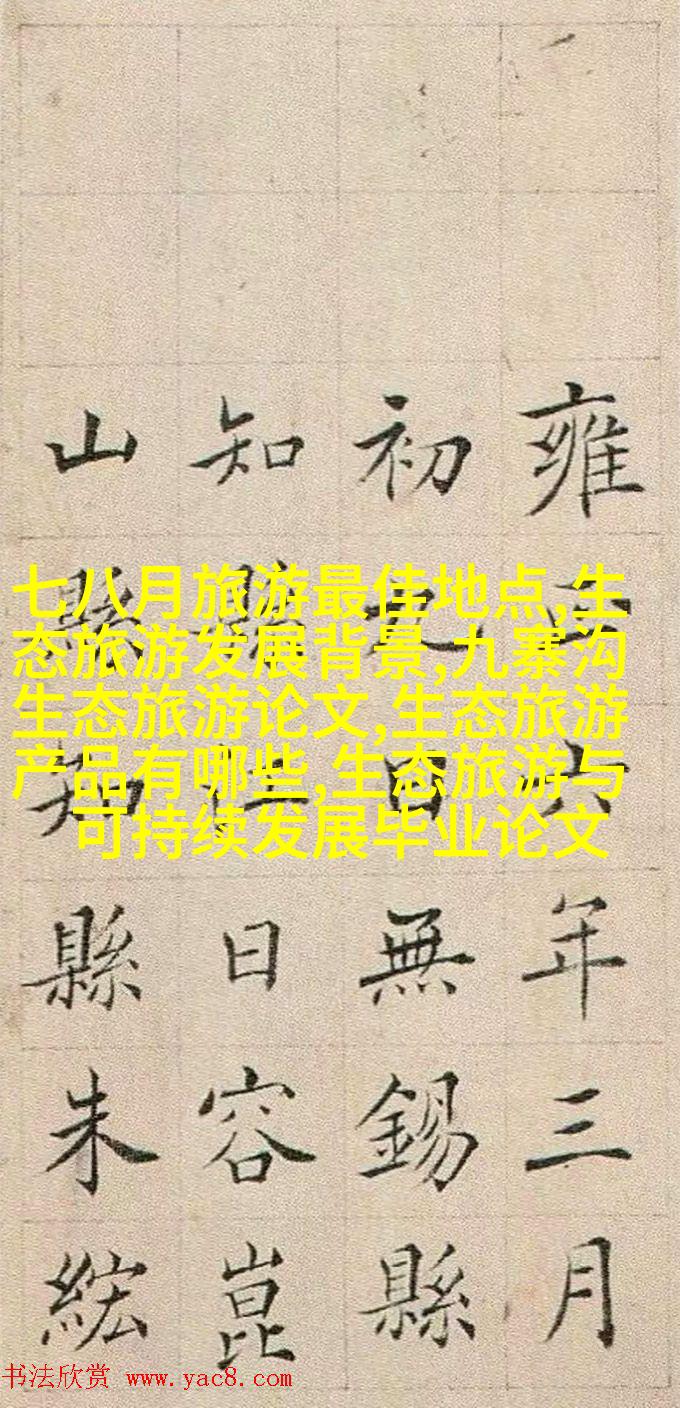 七八月旅游最佳地点,生
态旅游发展背景,九寨沟
生态旅游论文,生态旅游
产品有哪些,生态旅游与
可持续发展毕业论文
雍正六年三月
初日無錫縣
知縣江日容崑
山縣知縣朱綋
书法欣赏 www.yac8.com